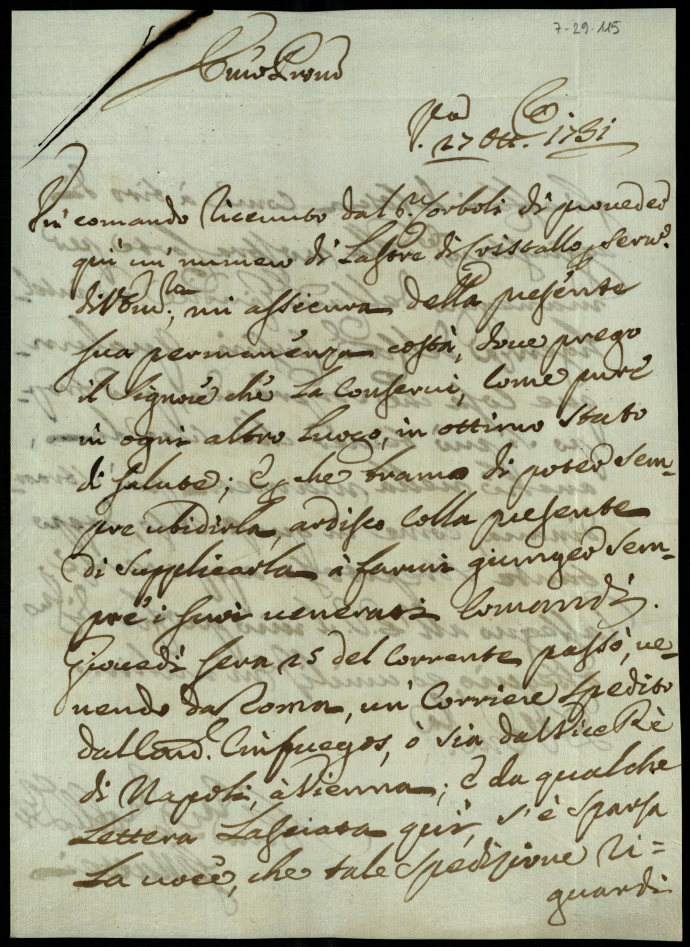 7-29-115
27 Ott. 1731
Un comando ricevuto dal Sr. Torboli di proveder
qui un numero di Lastre di Cristallo p serv.
mi assicura della presente
sua permanenza costà, dove prego
il Signore che La Conservi, come pure
in ogni altro Luogo, in ottimo stato
di salute; E p che bramo di poter sem-
pre ubidirla, ardisco colla presente
di supplicarla à farmi giunger sem-
pre i suoi venerati Comandi.
Giovedì sera 25 del Corrente passò, ve-
nendo da Roma, un Corriere spedito
dal Cinfuegos, ò sia dal Vice Rè
di Napoli, à Vienna; E da qualche
Lettera Lasciata quì, s'è sparsa
La voce, che tale spedizione ri=
guardi